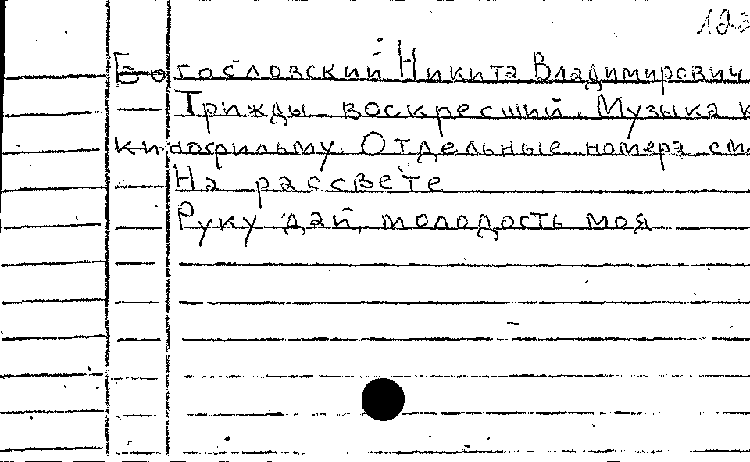 123
Богословский Никита Владимирович
Трижды воскресший. Музыка к
кинофильму. Отдельные номера см.
На рассвете
Руку дай, молодость моя